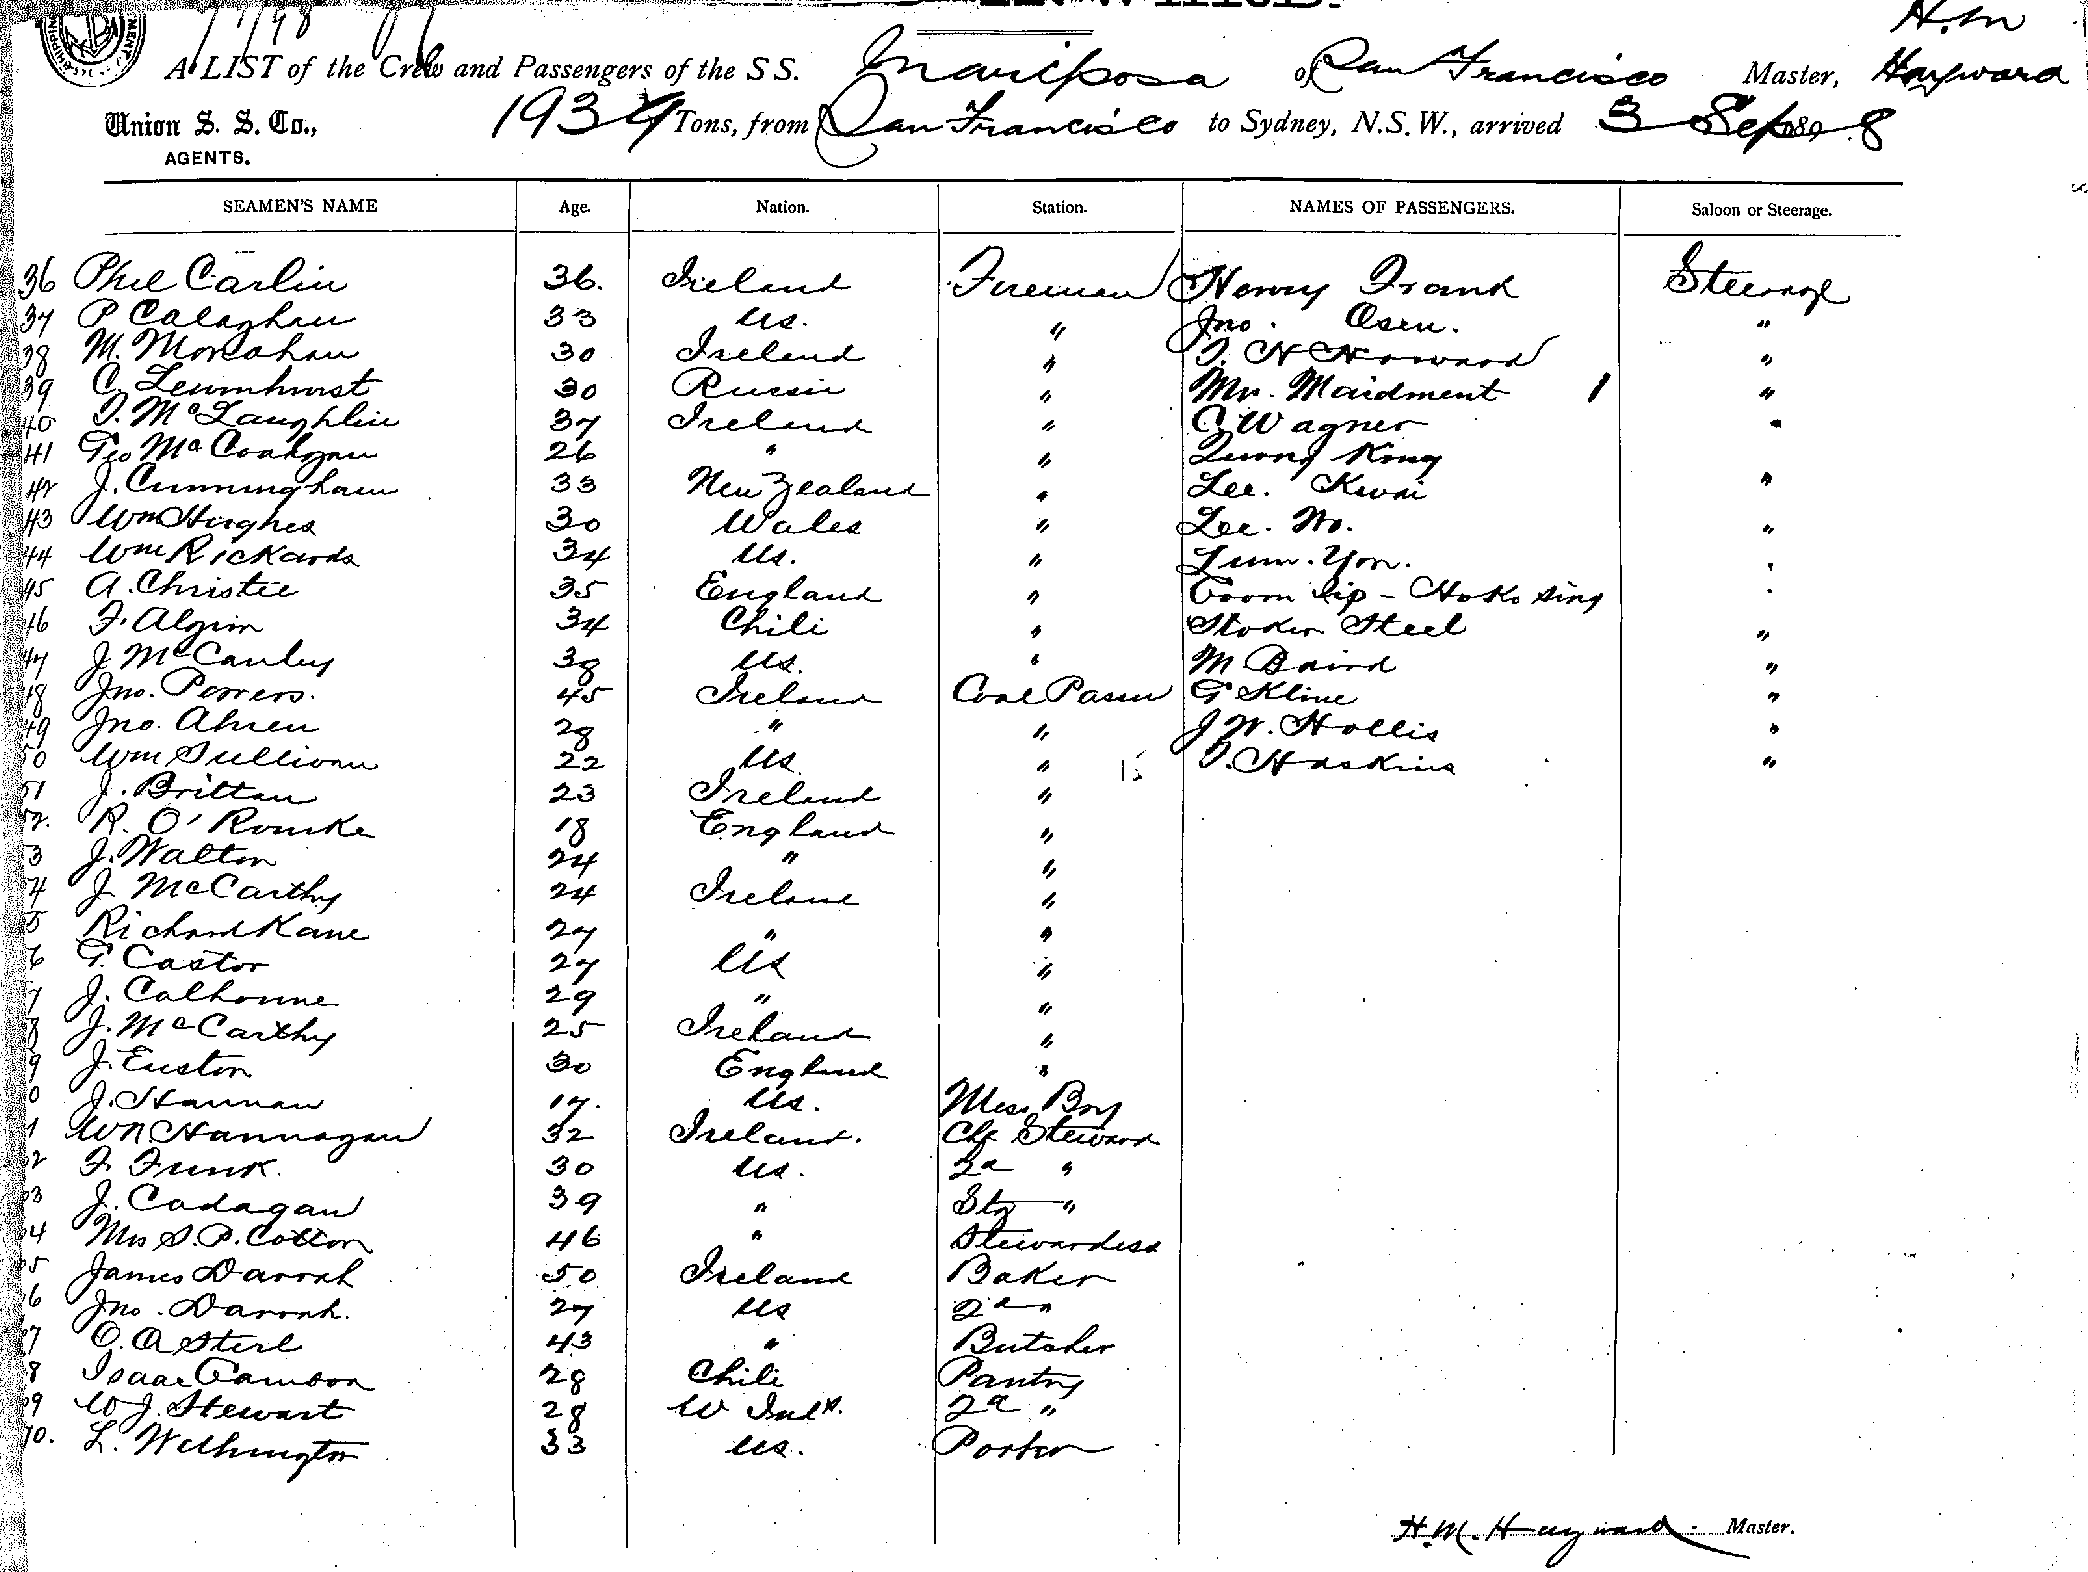 H.M
A LIST of the Crew and Passengers of the S S. Mariposa of San Francisco Master, Hayward
Union S. S. Co., 1934 Tons, from San Francisco to Sydney, N.S.W., arrived 3 Sep 1898
AGENTS.
SEAMEN'S NAME Age. Nation. Station. NAMES OF PASSENGERS. Saloon or Steerage.
36 Phil Carlin 36. Ireland Fireman Henry Frank Steerage
37 P Calaghan 33 US. " Jno. Osen. "
38 M. Monahan 30 Ireland " T. H Howard "
39 C 30 Russia " Mr. Maidment 1 "
40 T. McLaughlin 37 Ireland " C Wagner "
41 Geo 26 " " Quong Kong
42 J. Cunningham 33 New Zealand " Lee. Kwai "
43 Wm Hughes 30 Wales " Lee. Wo. "
44 Wm Rickards 34 US. " Lum. Yon. "
45 A. Christie 35 England " - "
46 F. Algin 34 Chili " Stoker Steel "
47 J McCauley 38 US. " M Baird "
48 Jno. Powers. 45 Ireland Coal Passer G Kline "
49 Jno. Ahren 28 " " J W. Hollis "
50 Wm Sullivan 22 US " 15 T. Haskins "
51 J. Brittan 23 Ireland "
52. R. O'Rourke 18 England "
3 J. Walton 24 " "
4 J McCarthy 24 Ireland "
5 Richard Kane 27 " "
6 G. Castor 27 US "
7 J. Calhoune 29 " "
8 J. McCarthy 25 Ireland "
9 J. Euston 30 England "
0 J. Hannan 17. US. Mess Boy
1 Wm Hannagan 32 Ireland. Chf Steward
2 F. Funk. 30 US. 2d "
3 J. Cadagan 39 " Stg "
4 Mrs S. P. Cotton 46 " Stewardess
5 James Darrah 50 Ireland Baker
6 Jno. Darrah. 27 US 2d "
7 O. A Sterl 43 " Butcher
8 Isaac Gamboa 28 Chili Pantry
9 W J. Stewart 28 W Inds. 2d "
70. L. Withington 33 US. Porter
H. M. Hayward. Master.